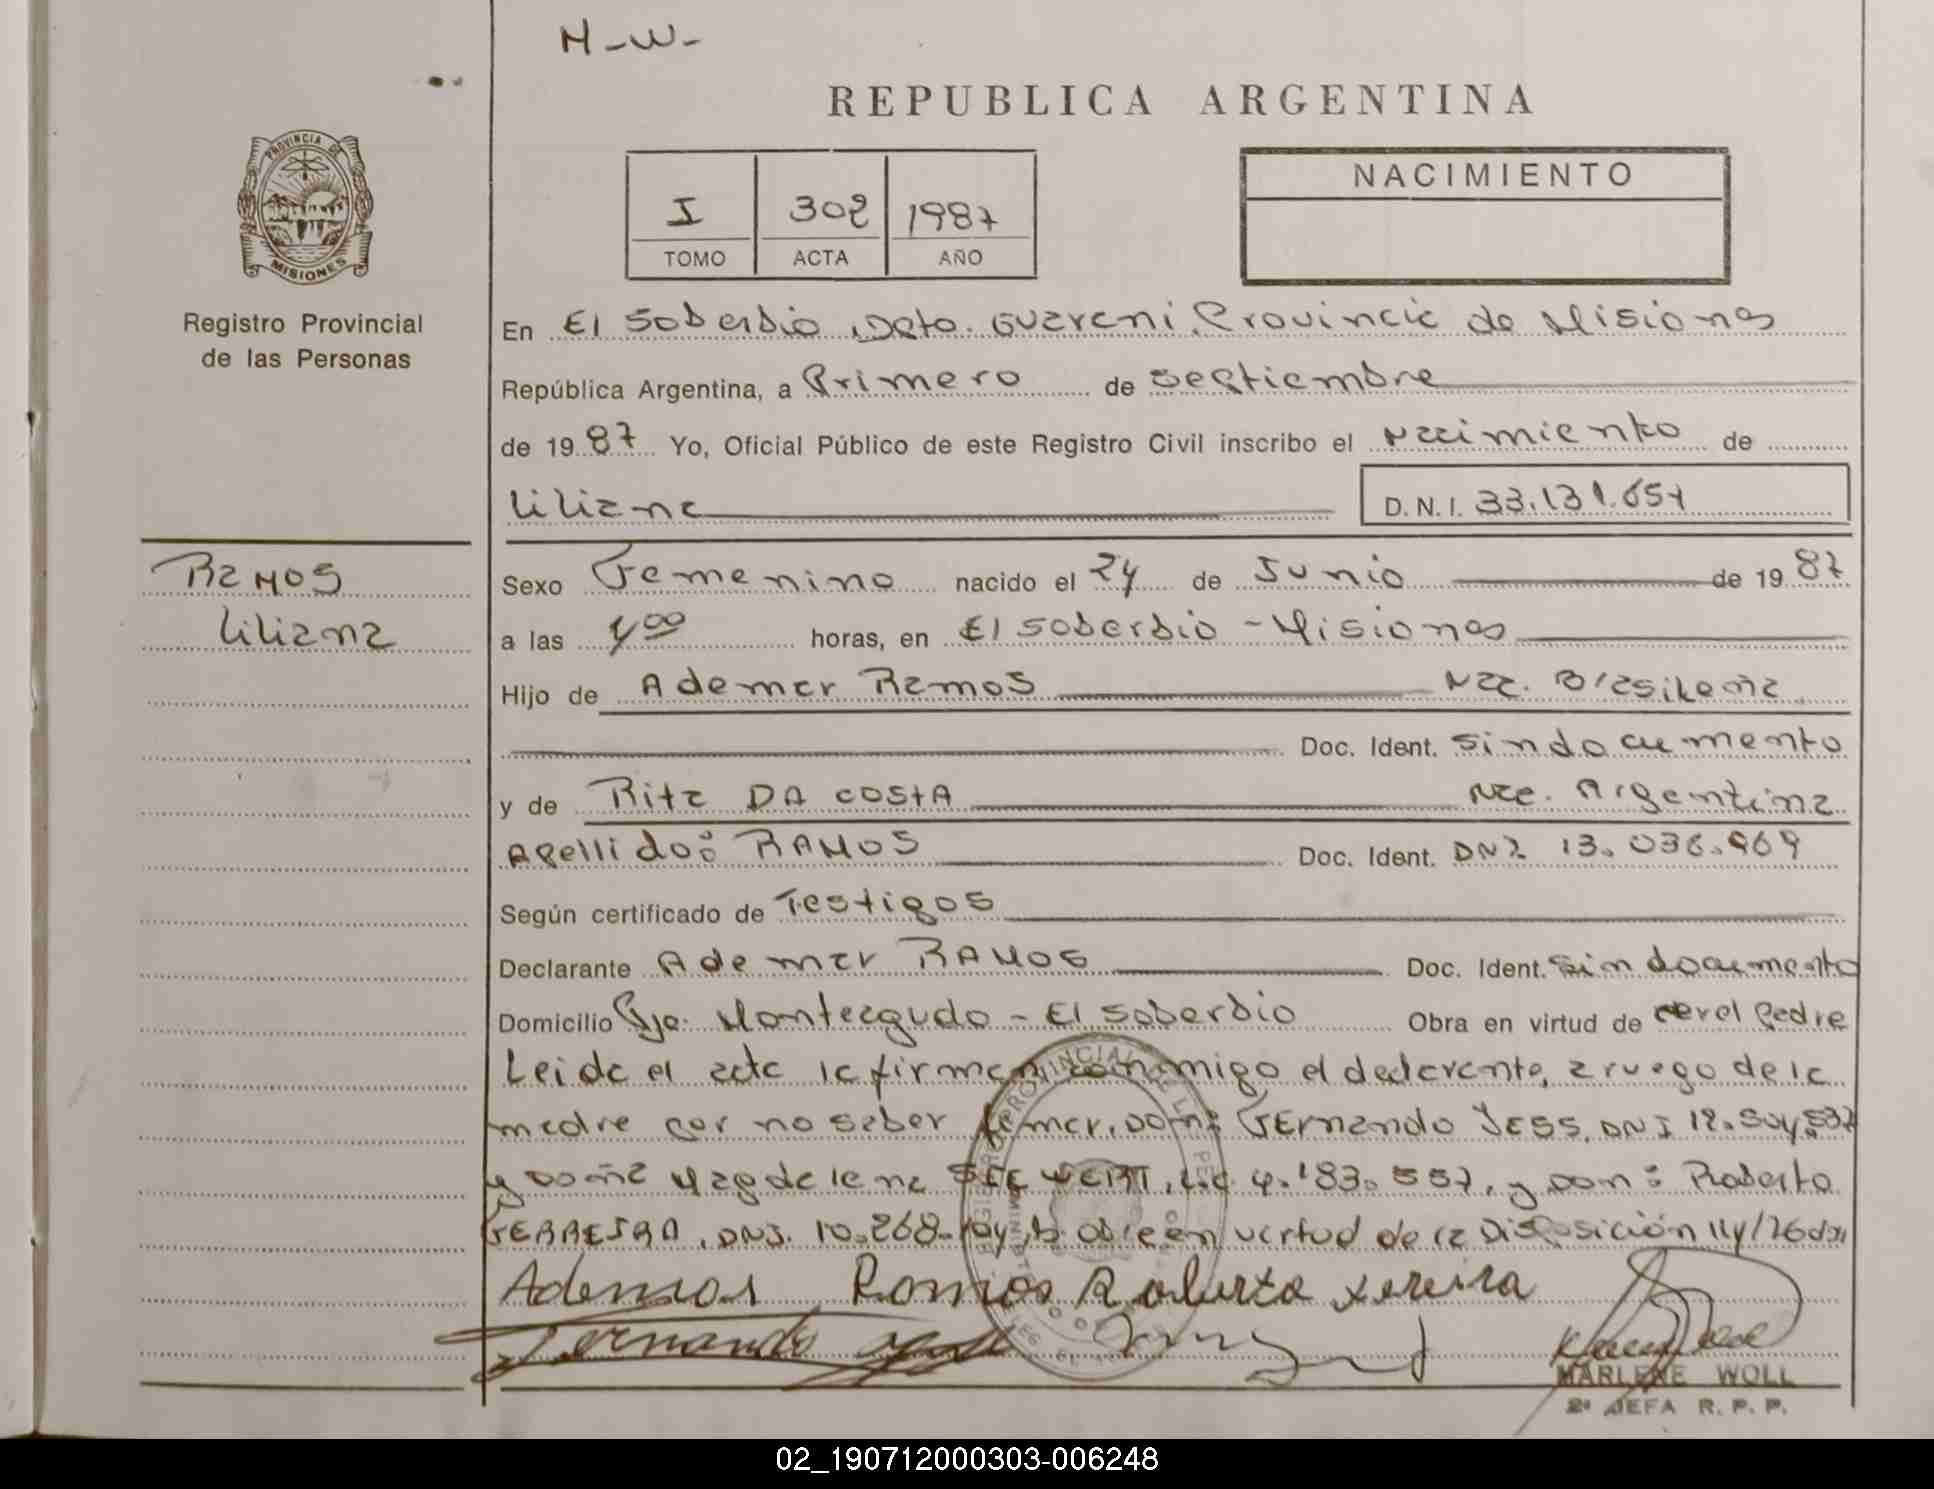 M-W-
REPUBLICA ARGENTINA
PROVINCIA DE
MISIONES
Registro Provincial
de las Personas
I 302 1987
TOMO ACTA AÑO
NACIMIENTO
En El Soberbio, Dpto. Guarani, Provincia de Misiones
República Argentina, a Primero de septiembre
de 1987 Yo, Oficial Público de este Registro Civil inscribo el nacimiento de
Liliana D.N.I. 33.131.651
Ramos
Liliana
Sexo Femenino nacido el 24 de Junio de 1987
a las 4 00 horas, en El Soberbio - Misiones
Hijo de Ademar Ramos Nac. Brasileña
Doc. Ident. sin documento
y de Rita DA COSTA Nac. Argentina
Apellido: RAMOS Doc. Ident. DNI 13.036.969
Según certificado de Testigos
Declarante Ademar RAMOS Doc. Ident. sin documento
Domicilio Pje. Monteagudo - El Soberbio Obra en virtud de ser el Padre
Leida el acta la firman conmigo el declarante, a ruego de la
madre por no saber firmar, Don: Fernando JESS, DNI
y doña Magdalena L.C. 4.183.557, y don: Roberto
FERREIRA, DNI. 10.268. obre en virtud de la Disposición
Ademar Ramos Roberto Fereira
Fernando
MARLENE WOLL
2ª JEFA R. P. P.
02_190712000303-006248